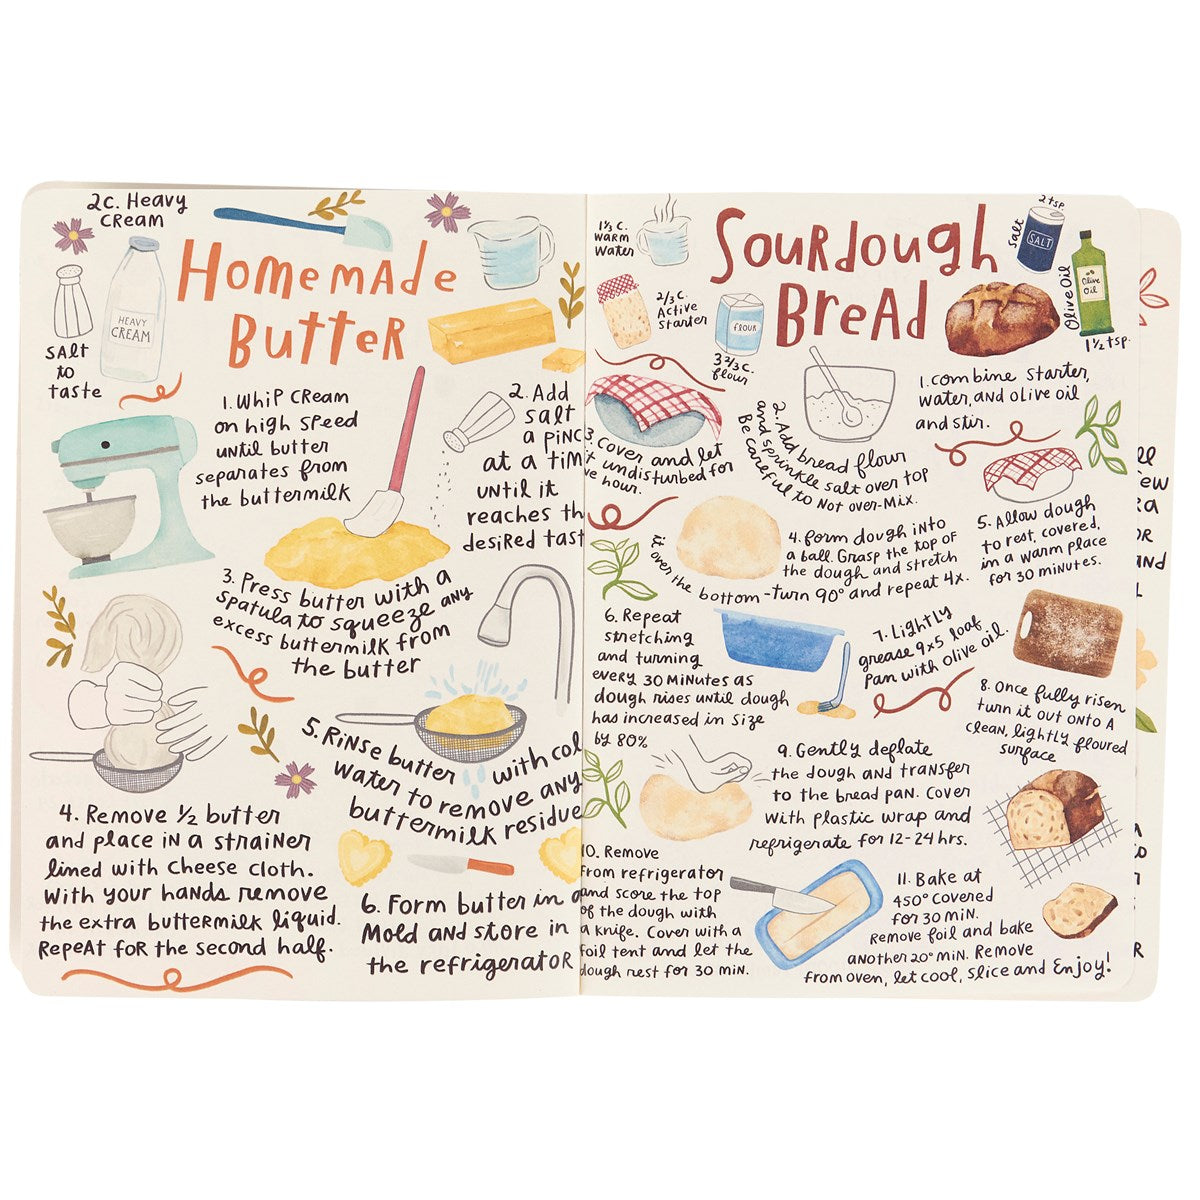 2c. Heavy
Cream
Homemade
Butter
HEAVY
CREAM
Salt
to
taste
1. Whip Cream
on high speed
until butter
separates from
the buttermilk
2. Add
salt
a pinc
at a tim
until it
reaches th
desired tast
3. Press butter with a
spatula to squeeze any
excess buttermilk from
the butter
4. Remove ½ butter
and place in a strainer
lined with cheese cloth.
With your hands remove
the extra buttermilk liquid.
Repeat for the second half.
5. Rinse butter with col
water to remove any
buttermilk residue
6. Form butter in a
mold and store in
the refrigerator
Sourdough
Bread
1⅓ c.
warm
water
2/3 c.
Active
Starter
flour
3 2/3 c.
flour
2 tsp
Salt
SALT
Olive Oil
Olive
Oil
1 ½ tsp.
1. combine starter,
water, and olive oil
and stir.
2. Add bread flour
and sprinkle salt over top
Be careful to not over-mix.
3. cover and let
it undisturbed for
ne hour.
4. form dough into
a ball. Grasp the top of
the dough and stretch
it over the bottom - turn 90° and repeat 4x.
5. Allow dough
to rest, covered,
in a warm place
for 30 minutes.
6. Repeat
stretching
and turning
every 30 minutes as
dough rises until dough
has increased in size
by 80%
7. Lightly
grease 9x5 loaf
pan with olive oil.
8. Once fully risen
turn it out onto a
clean, lightly floured
surface
9. Gently deflate
the dough and transfer
to the bread pan. Cover
with plastic wrap and
refrigerate for 12-24 hrs.
10. Remove
from refrigerator
and score the top
of the dough with
a knife. Cover with a
foil tent and let the
dough rest for 30 min.
11. Bake at
450° covered
for 30 min.
Remove foil and bake
another 20° min. Remove
from oven, let cool, slice and Enjoy!